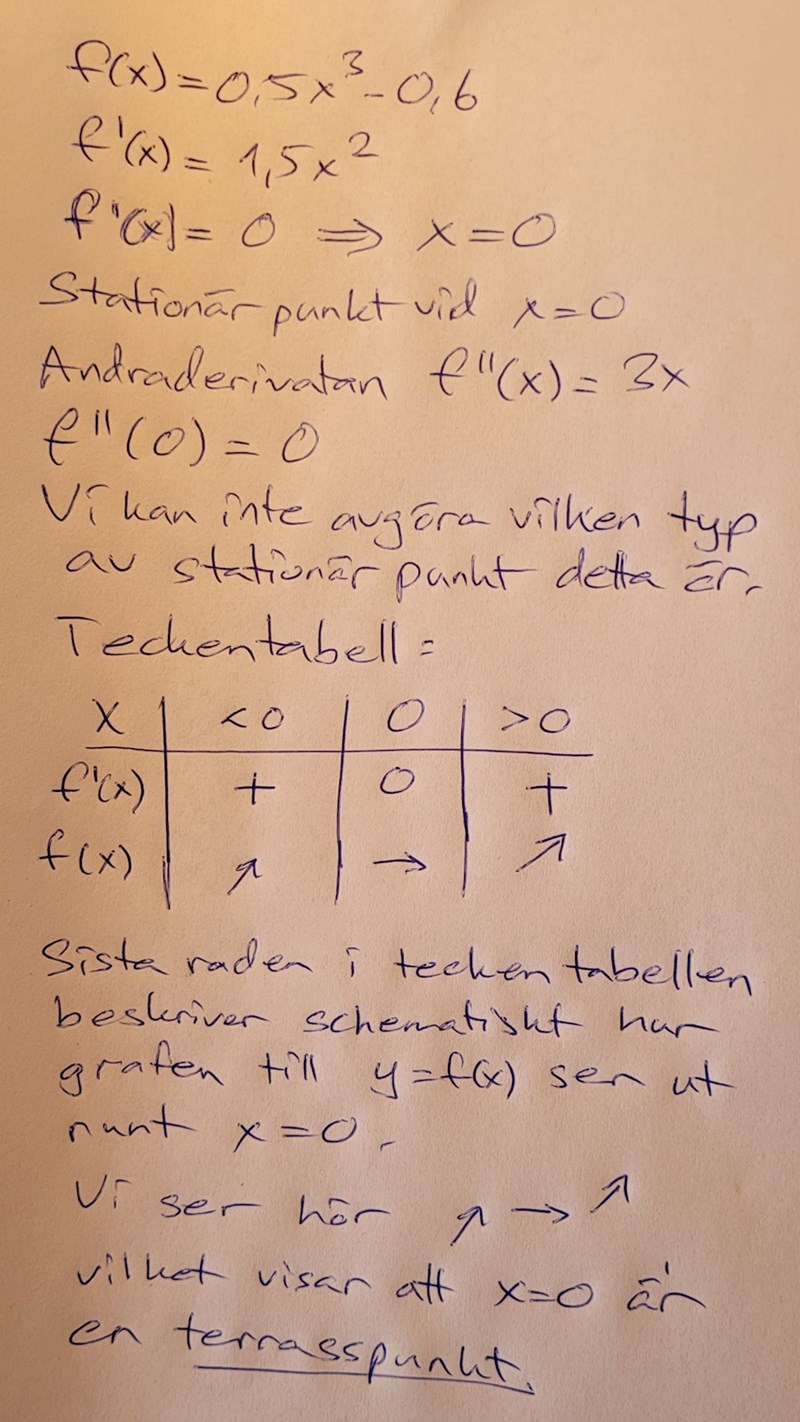 f(x) = 0,5x³ - 0,6
f'(x) = 1,5x²
f'(x) = 0 ⇒ x = 0
Stationär punkt vid x = 0
Andraderivatan f''(x) = 3x
f''(0) = 0
Vi kan inte avgöra vilken typ
av stationär punkt detta är.
Teckentabell:
x | < 0 | 0 | > 0
f'(x) | + | 0 | +
f(x) | ↗ | → | ↗
Sista raden i teckentabellen
beskriver schematiskt hur
grafen till y = f(x) ser ut
runt x = 0.
Vi ser här ↗ → ↗
vilket visar att x = 0 är
en terrasspunkt.